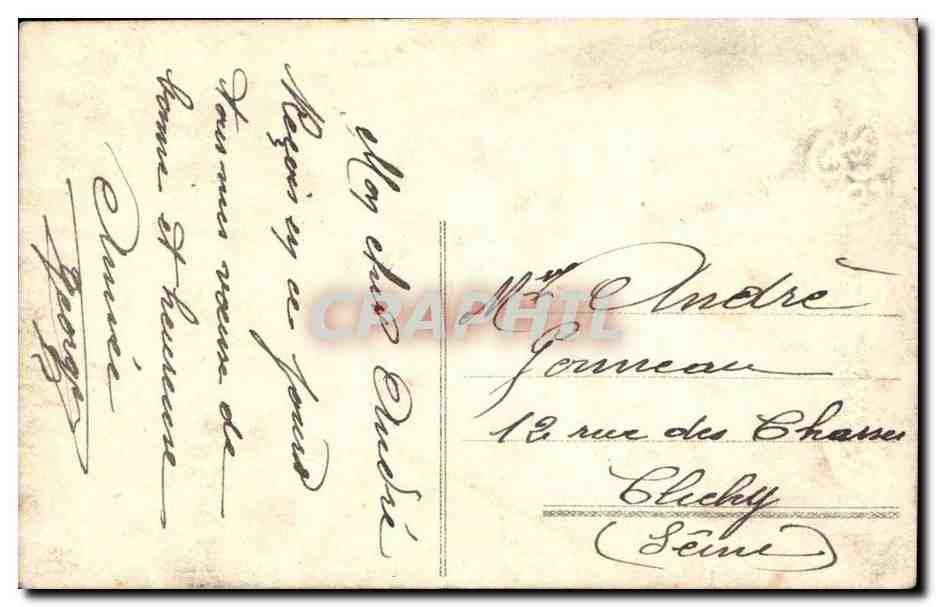 Mon cher André
Reçois en ce jour
tous mes voeux de
bonne et heureuse
Année
George
André
Gonneau
12 rue des Chasses
Clichy
(Seine)
CRAPHIL